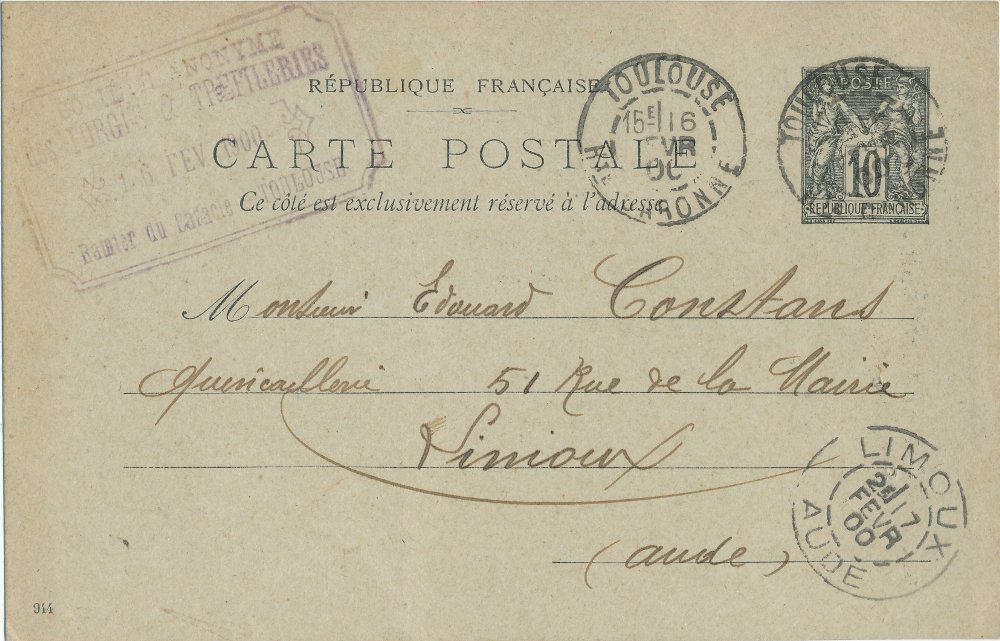 SOCIÉTÉ ANONYME
DES FORGES & TRÉFILERIES
16 FEV. 1900
Ramier du Bazacle TOULOUSE
RÉPUBLIQUE FRANÇAISE
CARTE POSTALE
Ce côté est exclusivement réservé à l'adresse
TOULOUSE
15E 16
FEVR
00
Hte GARONNE
TOULOUSE
POSTE
10
REPUBLIQUE FRANÇAISE
Monsieur Edouard Constans
Quincaillerie 51 Rue de la Mairie
Limoux
(Aude)
LIMOUX
2E 17
FEVR
00
AUDE
944